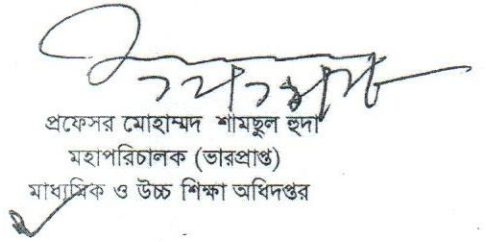 প্রফেসর মোহাম্মদ শামছুল হুদা
মহাপরিচালক (ভারপ্রাপ্ত)
মাধ্যমিক ও উচ্চ শিক্ষা অধিদপ্তর